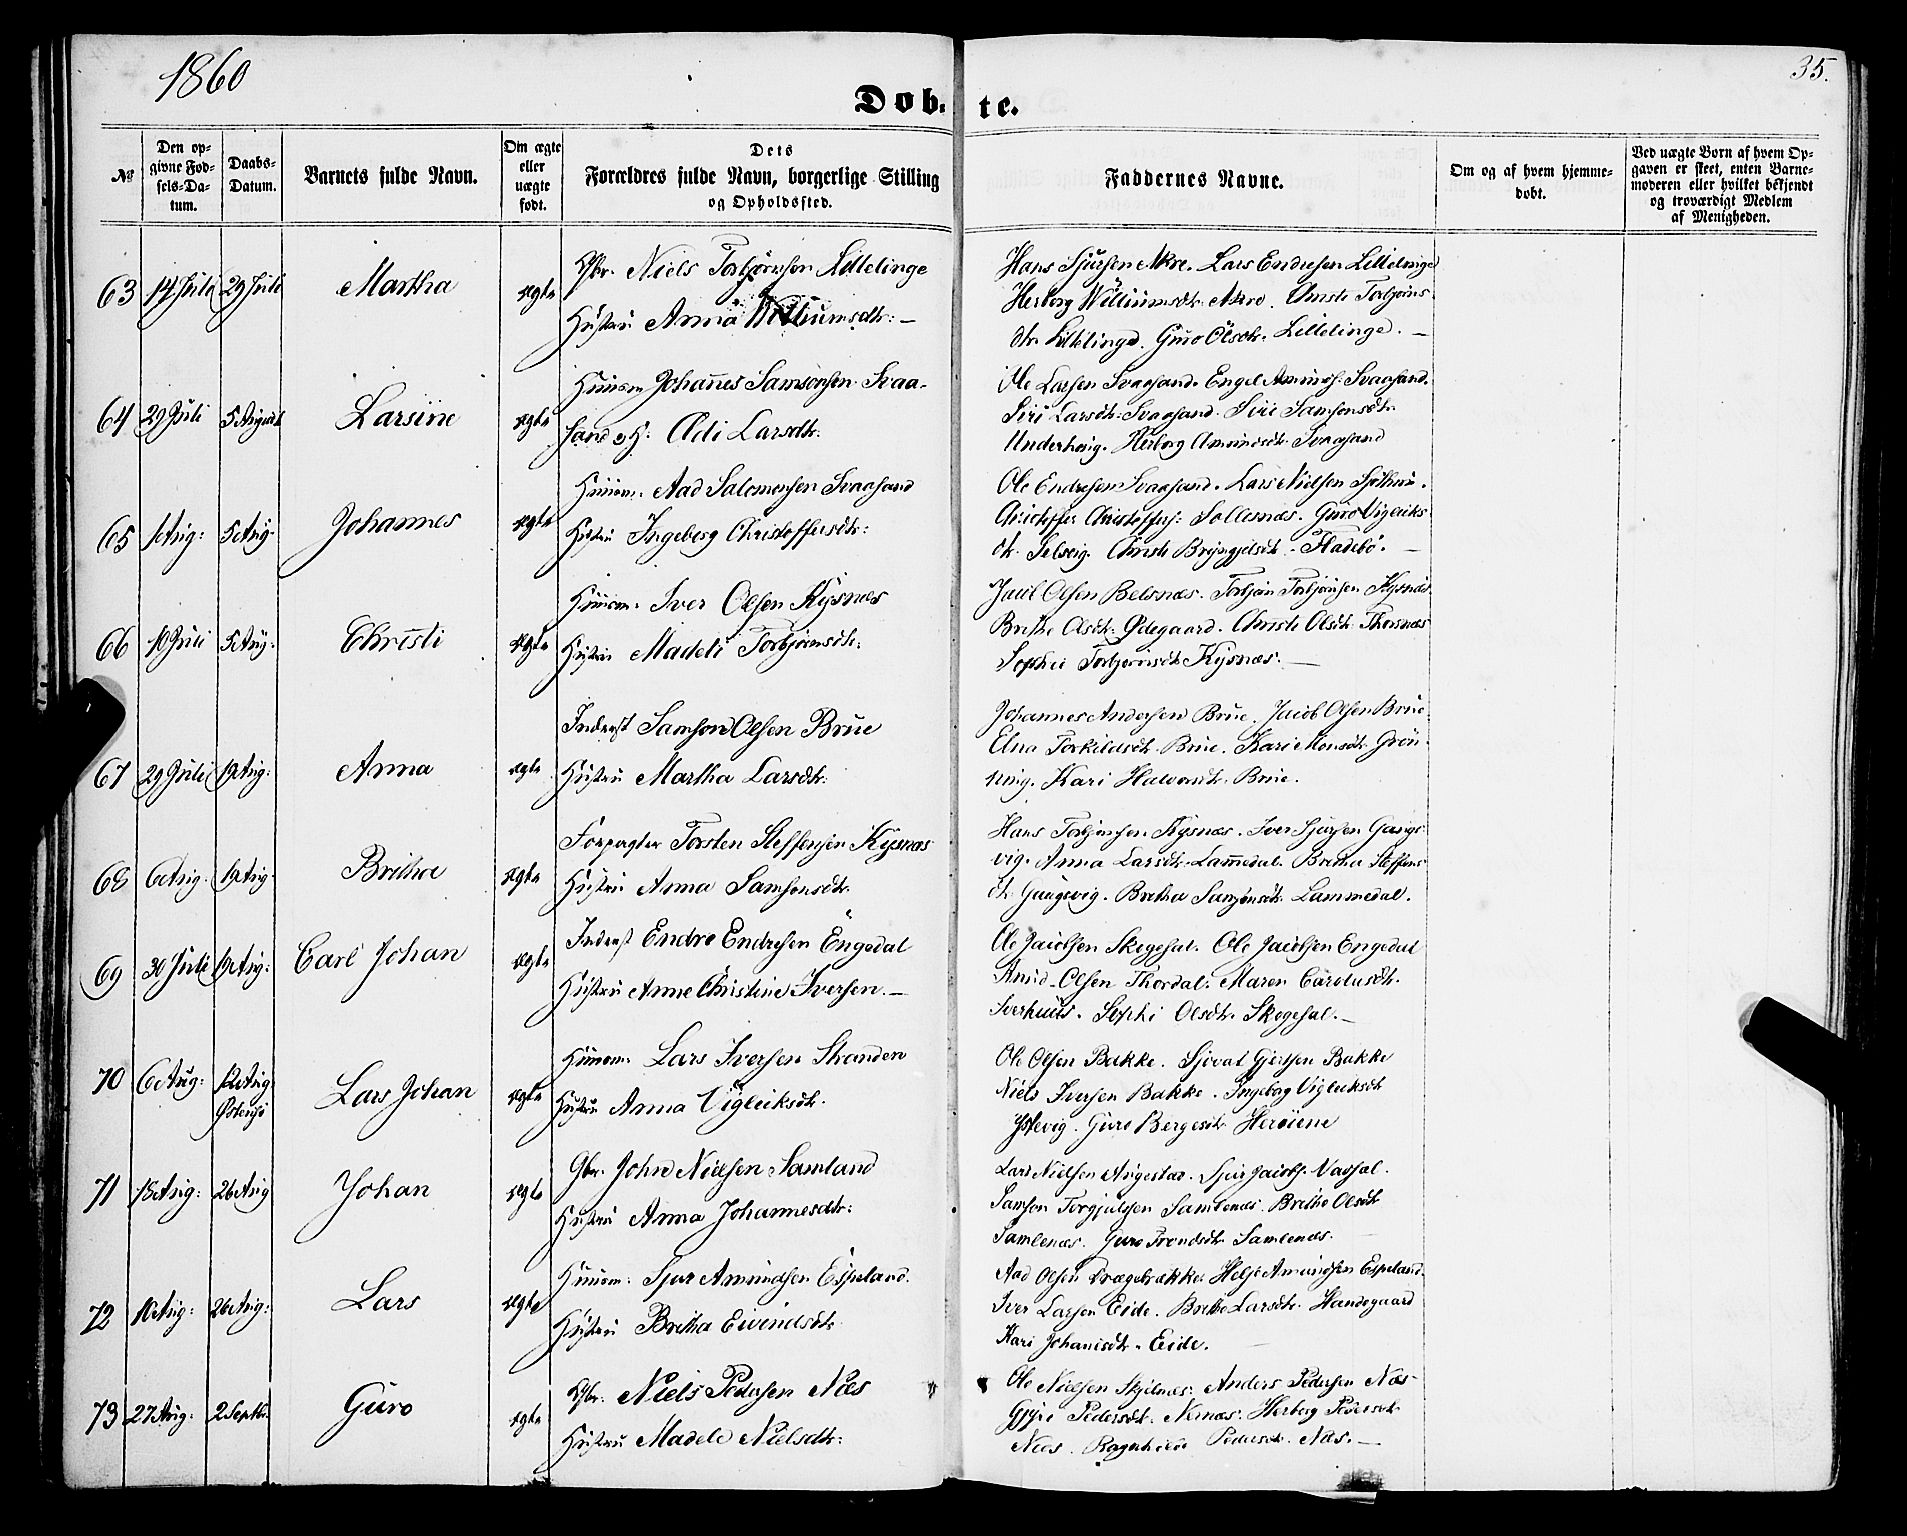 1860
35.
Døb-te.
№
Den op-
givne Fød-
sels-Da-
tum.
Daabs-
Datum.
Barnets fulde Navn.
Om ægte
eller
uægte
født.
Dets
Forældres fulde Navn, borgerlige Stilling
og Opholdssted.
Faddernes Navne.
Om og af hvem hjemme-
døbt.
Ved uægte Børn af hvem Op-
gaven er skeet, enten Barne-
moderen eller hvilket bekjendt
og troværdigt Medlem
af Menigheden.
63 14 Juli 29 Juli Martha ægte
Gbr. Niels Torbjørnsen Lillelinge
Hustru Anna Williumsdtr: —
Hans Sjursen Akre. Lars Endresen Lillelinge
Herborg Williumsdtr. Akre. Christi Torbjørns-
dtr. Lillelinge. Guro Olsdtr. Lillelinge. —
64 29 Juli 5 August Larsine ægte
Huusm. Johannes Samsonsen Svaa-
sand o H: Adi Larsdtr:
Ole Larsen Svaasand. Engel Amunds. Svaasand.
Siri Larsdtr. Svaasand. Siri Samsonsdtr.
Underhaug. Herborg Amundsdtr. Svaasand
65 1 Aug: 5 Aug. Johannes ægte
Huusm. Aad Salomonsen Svaasand
Hustru Ingeborg Christoffersdtr:
Ole Endresen Svaasand. Lars Nielsen
Christoffer Christoffers: Sollesnæs. Guro Vigleiks-
dtr. Selsvig. Christi Brynjelsdtr. Fladebø. —
66 10 Juli 5 Aug. Christi ægte
Huusm. Iver Olsen Kysnæs
Hustru Madeli Torbjørnsdtr:
Olsen Belsnæs. Torbjørn Torbjørnsen Kysnæs
Brithe Olsdtr. Ødegaard. Christi Olsdtr. Thorsnæs
Sophie Torbjørnsdtr Kysnæs. —
67 29 Juli 12 Aug: Anna ægte
Inderst Samson Olsen Brue
Hustru Martha Larsdtr:
Johannes Andersen Brue. Jacob Olsen Brue
Elna Torkildsdtr. Brue. Kari Monsdtr. Grøn-
ning. Kari Halvorsdtr. Brue.
68 6 Aug. 19 Aug. Britha ægte
Forpagter Torsten Steffensen Kysnæs
Hustru Anna Samsonsdtr.
Hans Torbjørnsen Kysnæs. Iver Sjursen Gangs-
vig. Anna Larsdtr. Lammedal. Britha Steffens-
dtr. Gangsvig. Britha Samsonsdtr. Lammedal.
69 30 Juli 19 Aug: Carl Johan ægte
Inderst Endre Endresen Engedal
Hustru Anne Christine Iversen. —
Ole Jacobsen Skogesal. Ole Jacobsen Engedal
Amund Olsen Thordal. Maren Carolusdtr.
Iverhuus. Sophi Olsdtr. Skogesal. —
70 6 Aug: 12 Aug Østensø Lars Johan ægte
Huusm. Lars Iversen Stranden
Hustru Anna Vigleiksdtr.
Ole Olsen Bakke. Sjovat Gjertsen Bakke
Niels Iversen Bakke. Ingeborg Vigleiksdtr
Ystevig. Guro Bergesdtr. Herøiene
71 15 Aug: 26 Aug Johan ægte
Gbr. John Nielsen Samland
Hustru Anna Johannesdtr:
Lars Nielsen Augestad. Sjur Jacobs. Vassal.
Samson Torgjulsen Samlenæs. Britha Olsdtr
Samlenæs. Guro Trondsdtr. Samlenæs.
72 10 Aug: 26 Aug: Lars ægte
Huusm: Sjur Amundsen Espeland.
Hustru Britha Eivindsdtr.
Aad Olsen Drægebrække. Helje Amundsen Espeland.
Iver Larsen Eide. Brithe Larsdtr. Handegaard
Kari Johanisdtr. Eide.
73 27 Aug: 2 Septbr. Guro ægte
Gbr. Niels Pedersen Næs
Hustru Madele Nielsdtr:
Ole Nielsen Skjelnæs. Anders Pedersen Næs
Gyri Pedersdtr. Nernæs. Herborg Pedersdtr.
Næs. Ragnhilde Pedersdtr. Næs. —